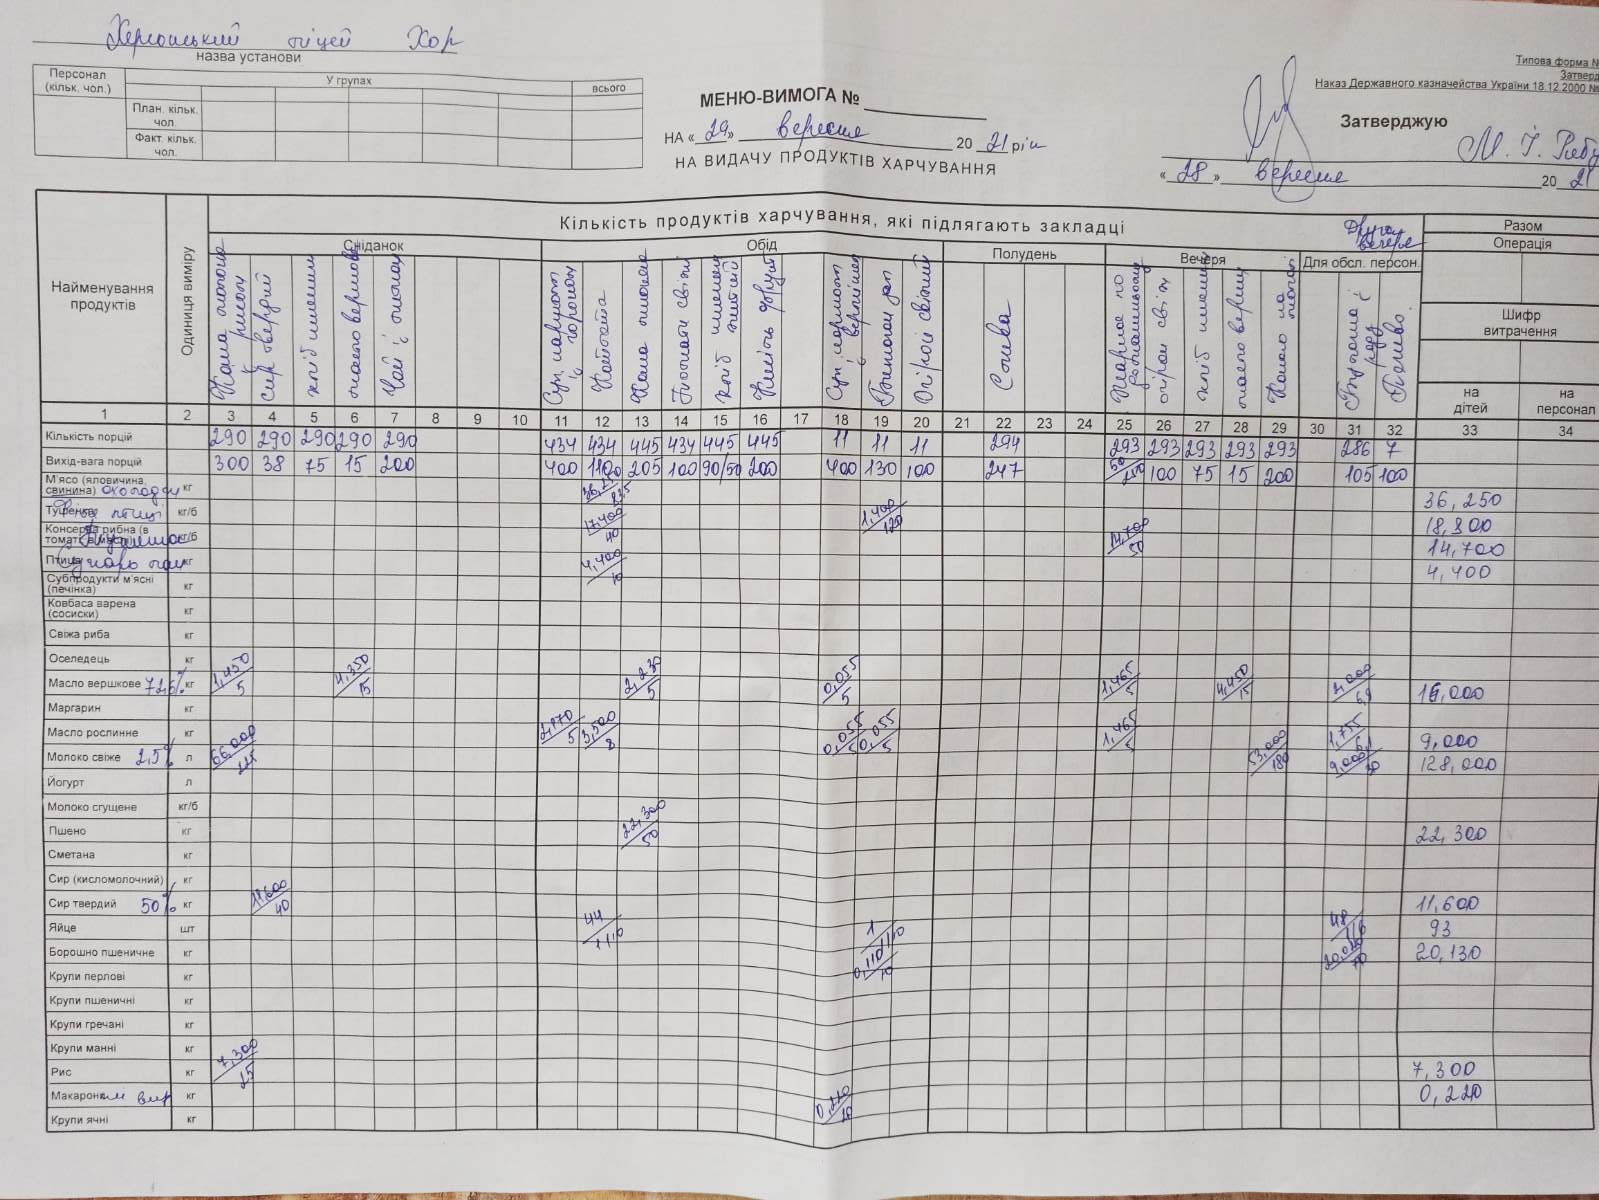 Херсонський ліцей ХОР
назва установи
Персонал (кільк. чол.) У групах всього
План. кільк. чол.
Факт. кільк. чол.
МЕНЮ-ВИМОГА №
НА «29» вересня 2021 рік
НА ВИДАЧУ ПРОДУКТІВ ХАРЧУВАННЯ
Типова форма №
Затверд
Наказ Державного казначейства України 18.12.2000 №
Затверджую
М. І.
«28» вересня 2021
Найменування продуктів
Одиниця виміру
Кількість продуктів харчування, які підлягають закладці
Друга вечеря
Разом
Сніданок Обід Полудень Вечеря Для обсл. персон. Операція
Каша молочна рисом
Сир твердий
хліб пшенич
масло вершкове
Чай
Каша
хліб
Суп
Огірки свіжий
Слива
огірки свіж
хліб пшенич
масло верш
Какао на
Шифр витрачення
на дітей на персонал
1 2 3 4 5 6 7 8 9 10 11 12 13 14 15 16 17 18 19 20 21 22 23 24 25 26 27 28 29 30 31 32 33 34
Кількість порцій 290 290 290 290 290 434 434 445 434 445 445 11 11 11 294 293 293 293 293 293 286 7
Вихід-вага порцій 300 38 75 15 200 400 110 205 100 90/50 200 400 130 100 247 50/250 100 75 15 200 105 100
М'ясо (яловичина, свинина) кг 36,250
Тушенка птиці кг/б 17,400/40 1,400/120 18,800
Консерва рибна (в томаті, в маслі) кг/б 14,700/50 14,700
Птиця кг 4,400/10 4,400
Субпродукти м'ясні (печінка) кг
Ковбаса варена (сосиски) кг
Свіжа риба кг
Оселедець кг
Масло вершкове 72,5% кг 1,450/5 4,350/15 2,230/5 0,055/5 1,465/5 4,450/15 16,000
Маргарин кг
Масло рослинне 2,170/5 3,500/8 0,055/5 0,055/5 1,465/5 1,755/6,1 9,000
Молоко свіже 2,5% л 66,000/225 53,000/180 9,000/30 128,000
Йогурт л
Молоко сгущене кг/б
Пшено кг 22,300/50 22,300
Сметана кг
Сир (кисломолочний) кг
Сир твердий 50% кг 11,600/40 11,600
Яйце шт 44/1/10 1/1/10 48/1/6 93
Борошно пшеничне кг 0,110/10 20,020/70 20,130
Крупи перлові кг
Крупи пшеничні кг
Крупи гречані кг
Крупи манні кг
Рис кг 7,300/25 7,300
Макаронни вир кг 0,220/20 0,220
Крупи ячні кг